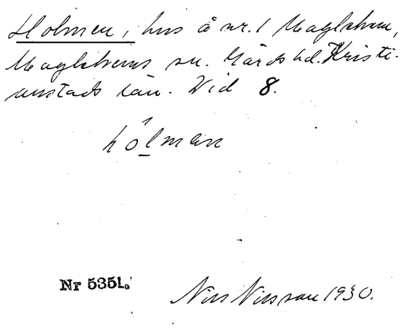 Holmen, hus å nr. 1 Maglehem,
Maglehems sn. Gärds hd. Kristi-
anstads län. Vid 8.
hólman
Nr 5351.
Nils Nilsson 1930.